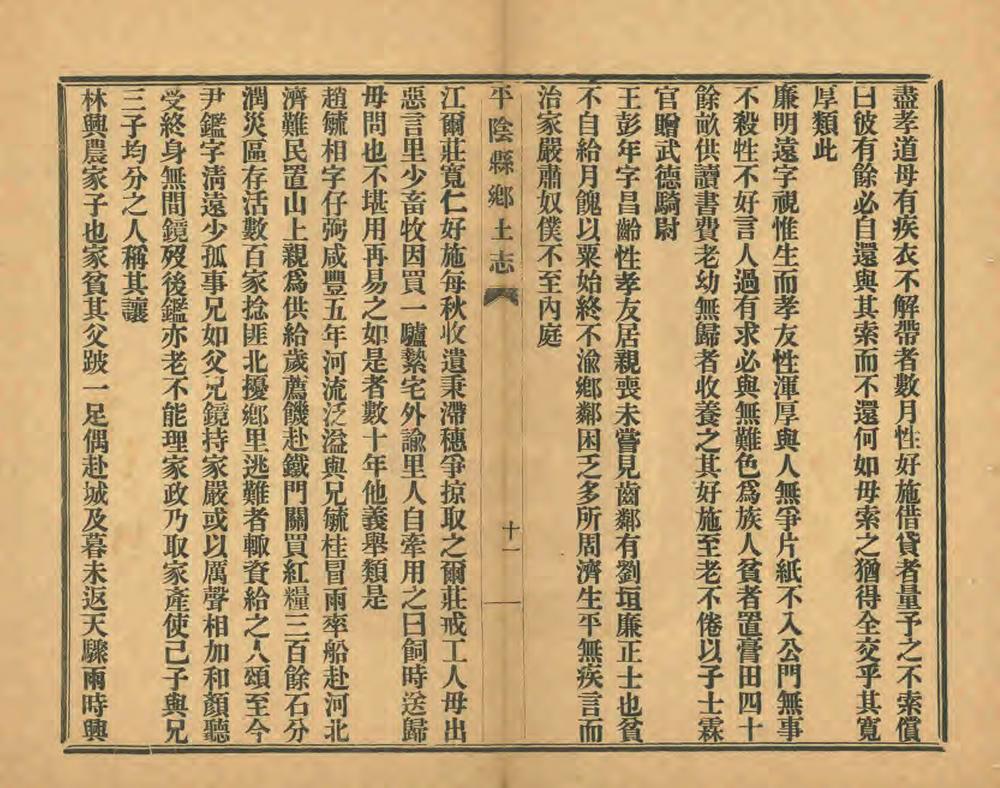 盡孝道母有疾衣不解帶者數月性好施借貸者量予之不索償
曰彼有餘必自還與其索而不還何如毋索之猶得全交乎其寬
厚類此
廉明遠字視惟生而孝友性渾厚與人無爭片紙不入公門無事
不殺牲不好言人過有求必與無難色爲族人貧者置膏田四十
餘畝供讀書費老幼無歸者收養之其好施至老不倦以子士霖
官贈武德騎尉
王彭年字昌齡性孝友居親喪未嘗見齒鄰有劉垣廉正士也貧
不自給月餽以粟始終不渝鄉鄰困乏多所周濟生平無疾言而
治家嚴肅奴僕不至內庭
平陰縣鄉土志
十一
江爾莊寬仁好施每秋收遺秉滯穗爭掠取之爾莊戒工人毋出
惡言里少畜牧因買一驢縶宅外諭里人自牽用之曰飼時送歸
毋問也不堪用再易之如是者數十年他義舉類是
趙毓相字仔弼咸豐五年河流泛溢與兄毓桂冒雨率船赴河北
濟難民置山上親爲供給歲薦饑赴鐵門關買紅糧三百餘石分
潤災區存活數百家捻匪北擾鄉里逃難者輒資給之人頌至今
尹鑑字清遠少孤事兄如父兄鏡持家嚴或以厲聲相加和顏聽
受終身無間鏡歿後鑑亦老不能理家政乃取家產使己子與兄
三子均分之人稱其讓
林興農家子也家貧其父跛一足偶赴城及暮未返天驟雨時興